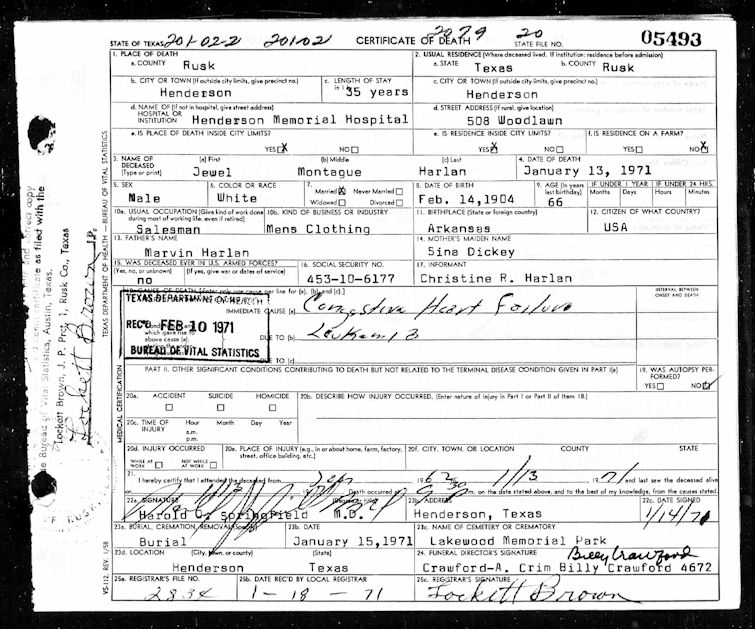 2079 20
STATE OF TEXAS 201-02-2 201-02 CERTIFICATE OF DEATH STATE FILE NO. 05493
1. PLACE OF DEATH 2. USUAL RESIDENCE (Where deceased lived. If institution: residence before admission)
a. COUNTY Rusk a. STATE Texas b. COUNTY Rusk
b. CITY OR TOWN (If outside city limits, give precinct no.) c. LENGTH OF STAY c. CITY OR TOWN (If outside city limits, give precinct no.)
Henderson 35 years Henderson
d. NAME OF (If not in hospital, give street address) d. STREET ADDRESS (If rural, give location)
HOSPITAL OR INSTITUTION Henderson Memorial Hospital 508 Woodlawn
e. IS PLACE OF DEATH INSIDE CITY LIMITS? e. IS RESIDENCE INSIDE CITY LIMITS? f. IS RESIDENCE ON A FARM?
YES X NO YES X NO YES NO X
3. NAME OF DECEASED (Type or print) (a) First (b) Middle (c) Last 4. DATE OF DEATH
Jewel Montague Harlan January 13, 1971
5. SEX 6. COLOR OR RACE 7. Married X Never Married 8. DATE OF BIRTH 9. AGE (In years last birthday) IF UNDER 1 YEAR IF UNDER 24 HRS.
Months Days Hours Minutes
Male White Widowed Divorced Feb. 14,1904 66
10a. USUAL OCCUPATION (Give kind of work done during most of working life, even if retired) 10b. KIND OF BUSINESS OR INDUSTRY 11. BIRTHPLACE (State or foreign country) 12. CITIZEN OF WHAT COUNTRY?
Salesman Mens Clothing Arkansas USA
13. FATHER'S NAME 14. MOTHER'S MAIDEN NAME
Marvin Harlan Sina Dickey
15. WAS DECEASED EVER IN U.S. ARMED FORCES? 16. SOCIAL SECURITY NO. 17. INFORMANT
(Yes, no, or unknown) (If yes, give war or dates of service)
no 453-10-6177 Christine R. Harlan
18. CAUSE OF DEATH [Enter only one cause per line for (a), (b), and (c).] INTERVAL BETWEEN ONSET AND DEATH
TEXAS DEPARTMENT OF HEALTH
IMMEDIATE CAUSE (a) Congestive Heart Failure
REC'D FEB 10 1971
which gave rise to above cause (a), DUE TO (b) Leukemia
BUREAU OF VITAL STATISTICS
DUE TO (c)
PART II. OTHER SIGNIFICANT CONDITIONS CONTRIBUTING TO DEATH BUT NOT RELATED TO THE TERMINAL DISEASE CONDITION GIVEN IN PART I(a) 19. WAS AUTOPSY PERFORMED?
YES NO
20a. ACCIDENT SUICIDE HOMICIDE 20b. DESCRIBE HOW INJURY OCCURRED. (Enter nature of injury in Part I or Part II of Item 18.)
20c. TIME OF INJURY Hour Month Day Year
a.m.
p.m.
20d. INJURY OCCURRED 20e. PLACE OF INJURY (e.g., in or about home, farm, factory, street, office building, etc.) 20f. CITY, TOWN, OR LOCATION COUNTY STATE
WHILE AT WORK NOT WHILE AT WORK
21. I hereby certify that I attended the deceased from Sep 1962 1/13 1971 and last saw the deceased alive
Death occurred at m. on the date stated above, and to the best of my knowledge, from the causes stated
22a. SIGNATURE (Degree or title) 22b. ADDRESS 22c. DATE SIGNED
Harold O. Springfield M.D. Henderson, Texas 1/14/71
23a. BURIAL, CREMATION, REMOVAL (Specify) 23b. DATE 23c. NAME OF CEMETERY OR CREMATORY
Burial January 15,1971 Lakewood Memorial Park
23d. LOCATION (City, town, or county) (State) 24. FUNERAL DIRECTOR'S SIGNATURE Billy Crawford
Henderson Texas Crawford-A. Crim Billy Crawford 4672
25a. REGISTRAR'S FILE NO. 25b. DATE REC'D BY LOCAL REGISTRAR 25c. REGISTRAR'S SIGNATURE
2834 1-18-71 Lockett Brown
TEXAS DEPARTMENT OF HEALTH — BUREAU OF VITAL STATISTICS
MEDICAL CERTIFICATION
VS-112, REV. 1/58
Lockett Brown J.P.
Lockett Brown, J. P. Prc. 1, Rusk Co., Texas
Bureau of Vital Statistics, Austin, Texas.
certificate as filed with the